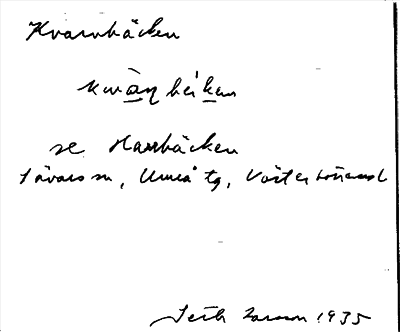 Kvarnbäcken
se Harrbäcken
Sävars sn, Umeå tg, Västerbotten
Seth Larsson 1935